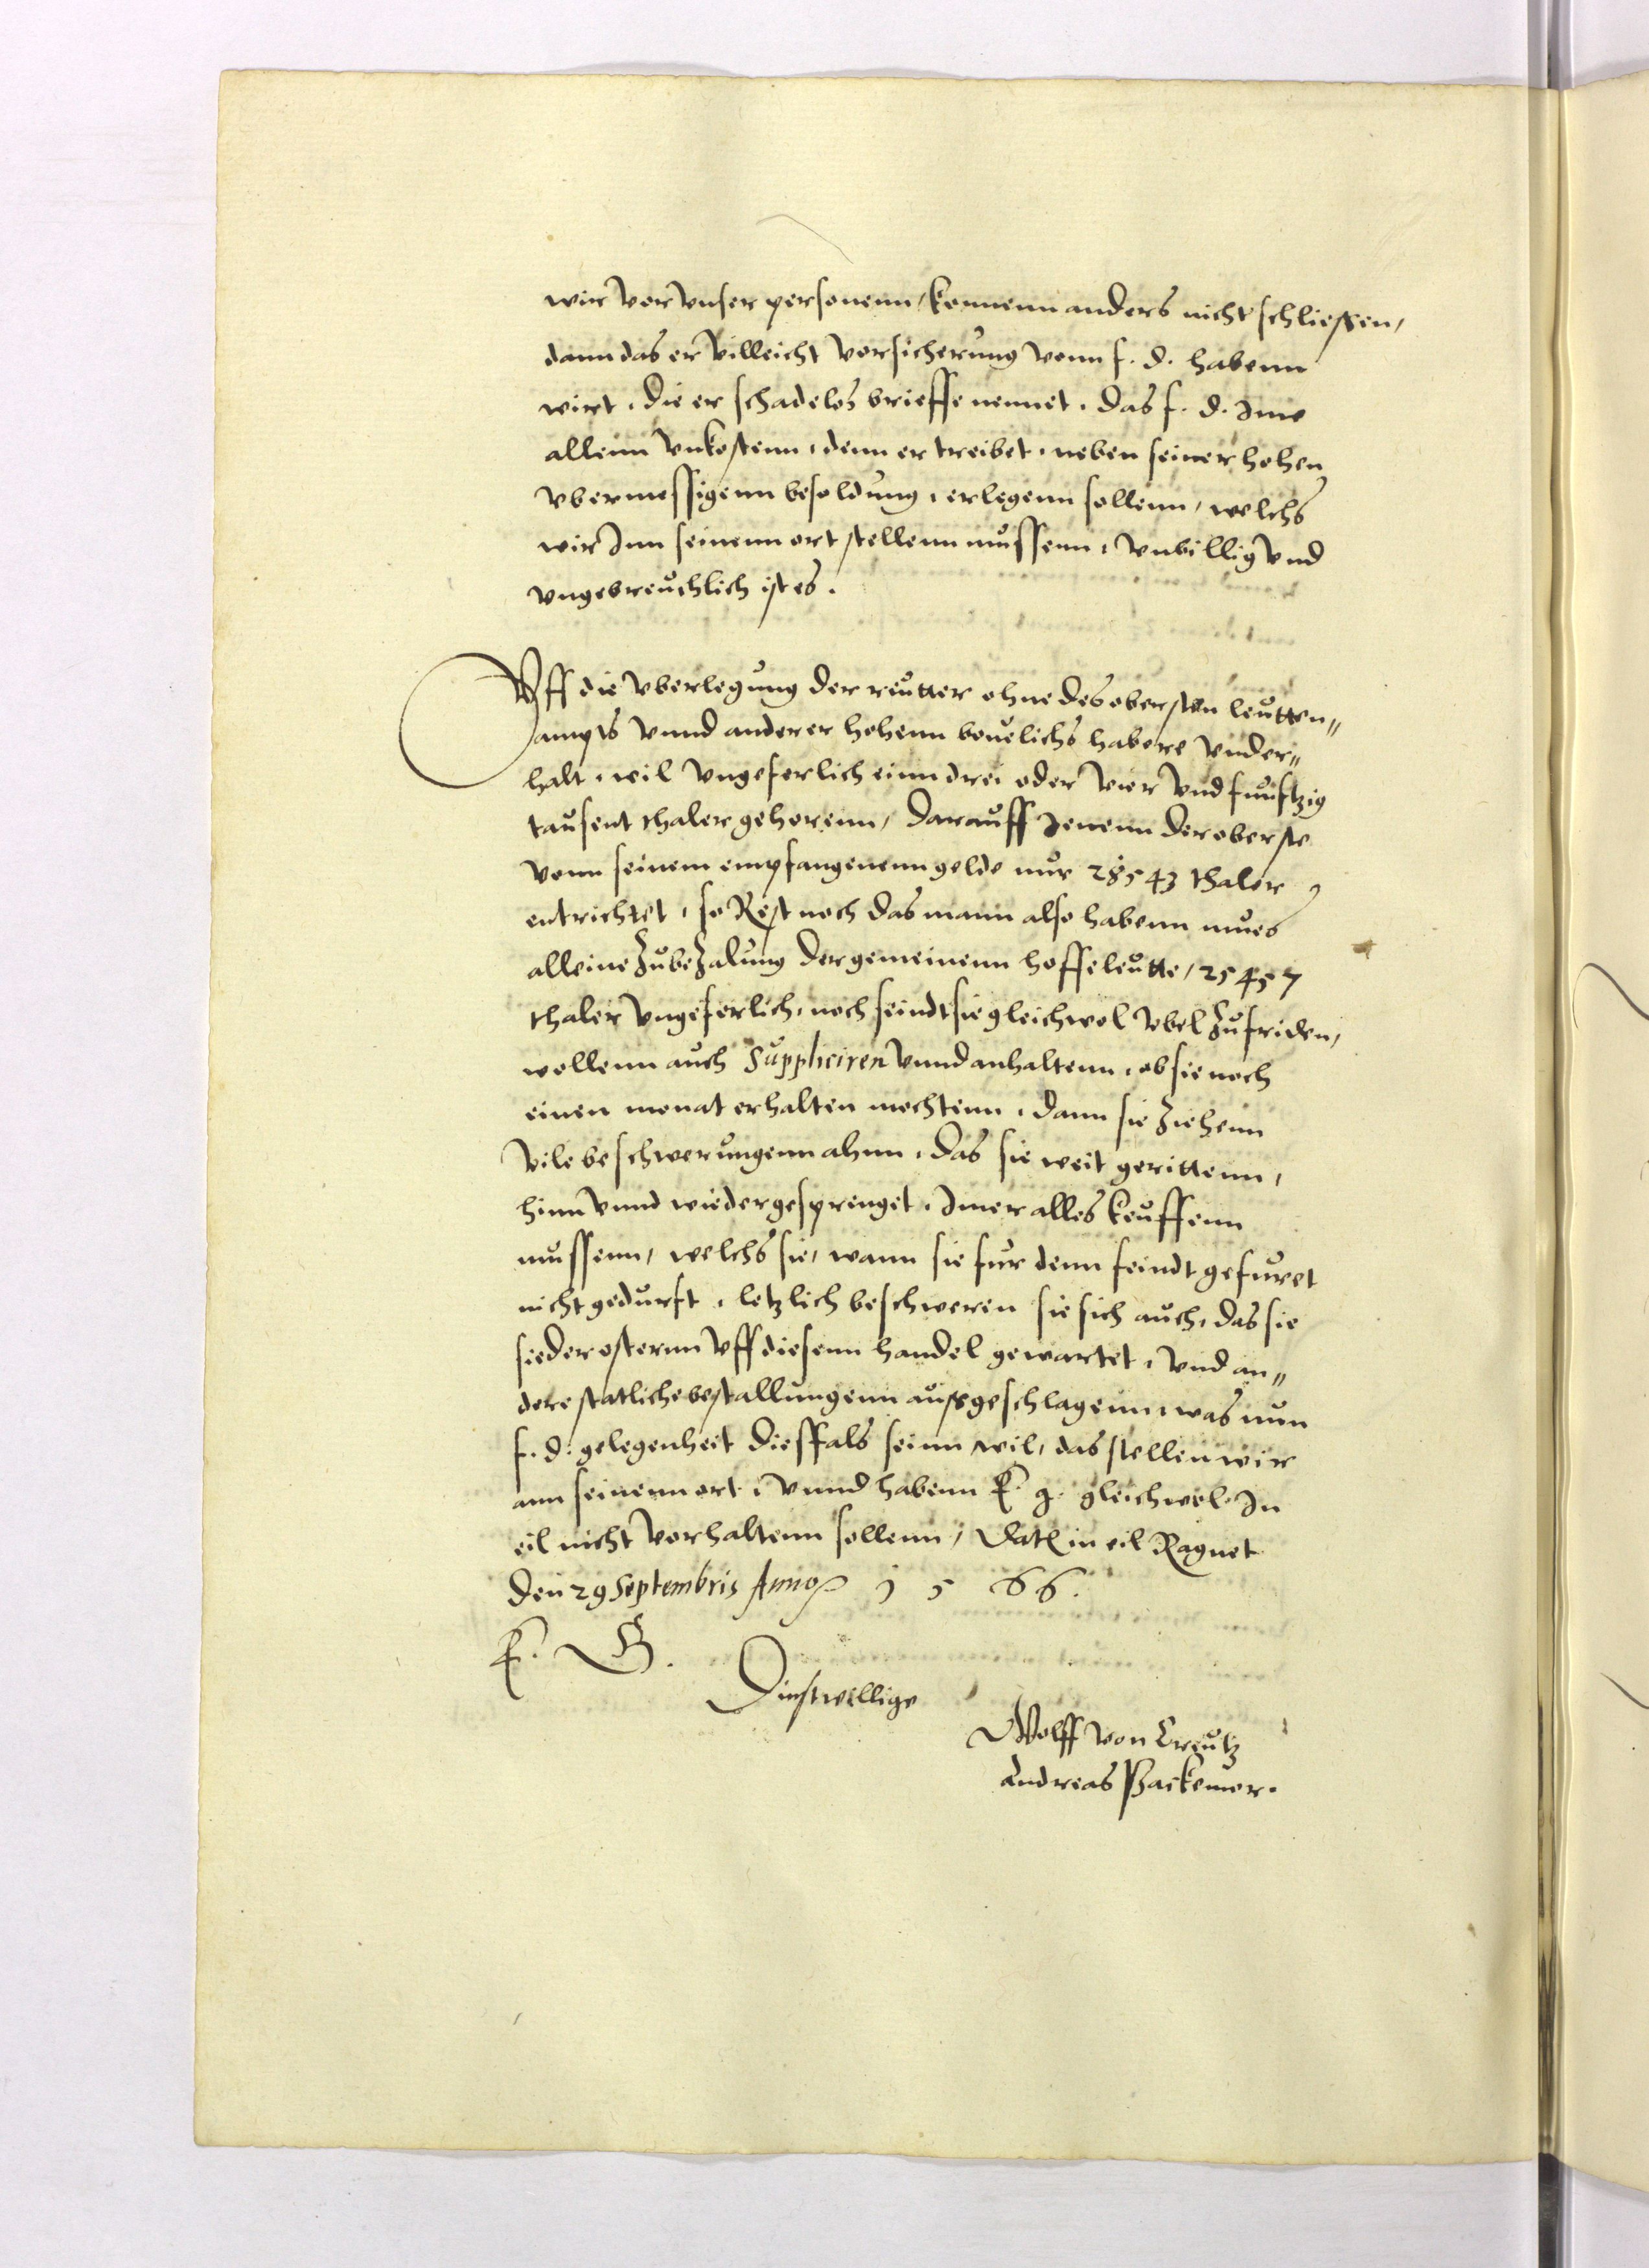 wir vor vnser personenn, konnenn anders nicht schliessen,
dann das er villeicht vorsicherung vonn f. d. habenn
wirt, die er schadelos brieffe nennet, das f. d. Ime
allenn vnkostenn, denn er treibet, neben seiner hohen
vbermessigenn besoldung, erlegenn sollenn, welchs
wir Inn seinenn ort stellenn mussenn, vnbillig vnd
vngebreuchlich ist es.
Vff die vberlegung der reutter ohne des obersten leutten„
ampts vnnd anderer hohenn beuelichs habere vnder„
halt, weil vngeferlich einn drei oder vier vnd funftzig
tausent thaler gehorenn, darauff Jenenn der oberste
vonn seinem empfangenenn gelde nur 28543 thaler
entrichtet, so Rest noch das mann also habenn mues
alleine zubezalung der gemeinenn hoffeleutte, 25457
thaler vngeferlich, noch seindt sie gleichwol vbel zufriden,
wollenn auch Suppliciren vnnd anhaltenn, ob sie noch
einen monat erhalten mochtenn, dann sie ziehenn
vile beschwerungenn ahnn, das sie weit gerittenn,
hinn vnnd wieder gesprenget, Imer alles keuffenn
mussenn, welchs sie, wann sie fur denn feindt gefuret
nicht gedurft, letzlich beschweren sie sich auch, das sie
sieder osternn vff diesenn handel gewartet, vnd an„
dere statliche bestallungenn aussgeschlagenn, was nun
f. d. gelegenheit diessfals seinn wil, das stellen wir
ann seinenn ort, vnnd habenn E. g. gleichwol In
eil nicht vorhaltenn sollenn, Dat in eil Ragnet
den 29 Septembris Anno 1566.
E. G.
Dinstwillige
Wolff von Creutz
Andreas Packemor.